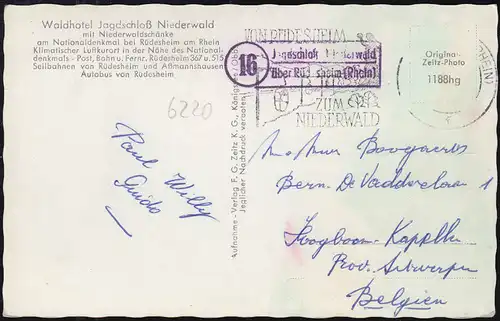 Waldhotel Jagdschloß Niederwald
mit Niederwaldschänke
am Nationaldenkmal bei Rüdesheim am Rhein
Klimatischer Luftkurort in der Nähe des National-
denkmals - Post, Bahn u. Fernr. Rüdesheim 367 u. 515
Seilbahnen von Rüdesheim und Aßmannshausen
Autobus von Rüdesheim
6220
Paul Willy
Guido
Aufnahme - Verlag F. G. Zeitz K. G., Königsee / Obb.
Jeglicher Nachdruck verboten!
VON RÜDESHEIM
16
Jagdschloß Niederwald
über Rüdesheim (Rhein)
ZUM
NIEDERWALD
RHEIN)
Original-
Zeitz-Photo
1188hg
Bern. De Vadderlaan 1
Hoogboom-Kapellen
Prov. Antwerpen
Belgien